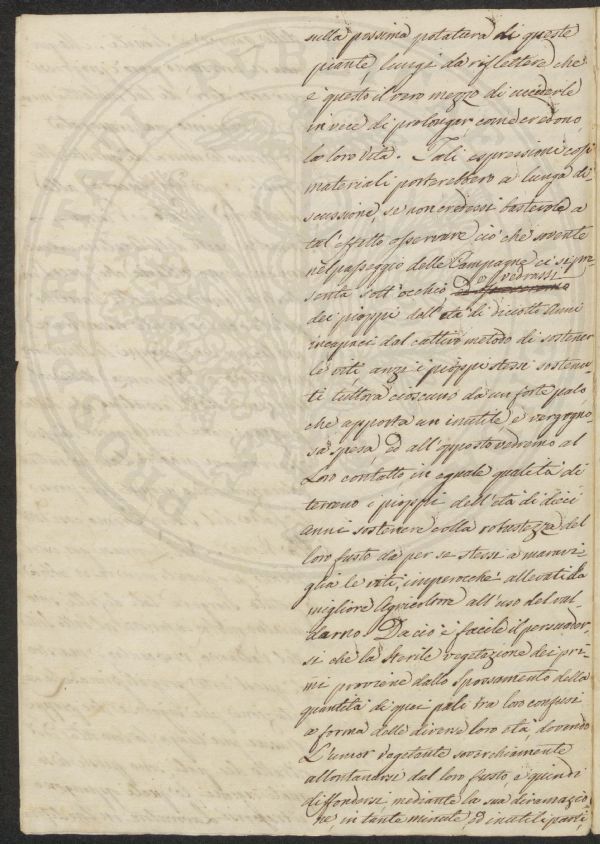 sulla pessima potatura di queste
piante, lungi da riflettere che
è questo il vero mezzo di ucciderle
in vece di prolonger, come credono,
la loro vita. Tali espressioni così
materiali porterebbero a lunga di-
scussione, se non credessi bastevole a
tal'effetto osservare ciò che sovente
nel passeggio delle Campagne ci si pre-
senta sott'occhio vedrassi
dei pioppi dell'età di diciotto anni
incapaci dal cattivo metodo di sostener
le viti, anzi i pioppi stessi sostenu-
ti tuttora ciascuno da un forte palo
che apporta un inutile e vergogno-
sa spesa, ed all'opposto vedremo al
Loro contatto in eguale qualità di
terreno i pioppi dell'età di dieci
anni sostenere colla robustezza del
loro fusto da per se stessi a maravi-
glia le viti, imperocchè allevati da
migliore Agricoltore all'uso del val-
darno. Da ciò è facile il persuader-
si che la sterile vegetazione dei pri-
mi proviene dallo spossamento della
quantità di quei pali tra loro confusi
a forma delle diverse loro età, dovendo
L'umor vegetante soverchiamente
allontanarsi dal loro fusto, e quindi
diffondersi, mediante la sua diramazio-
ne, in tante minute, ed inutili parti,